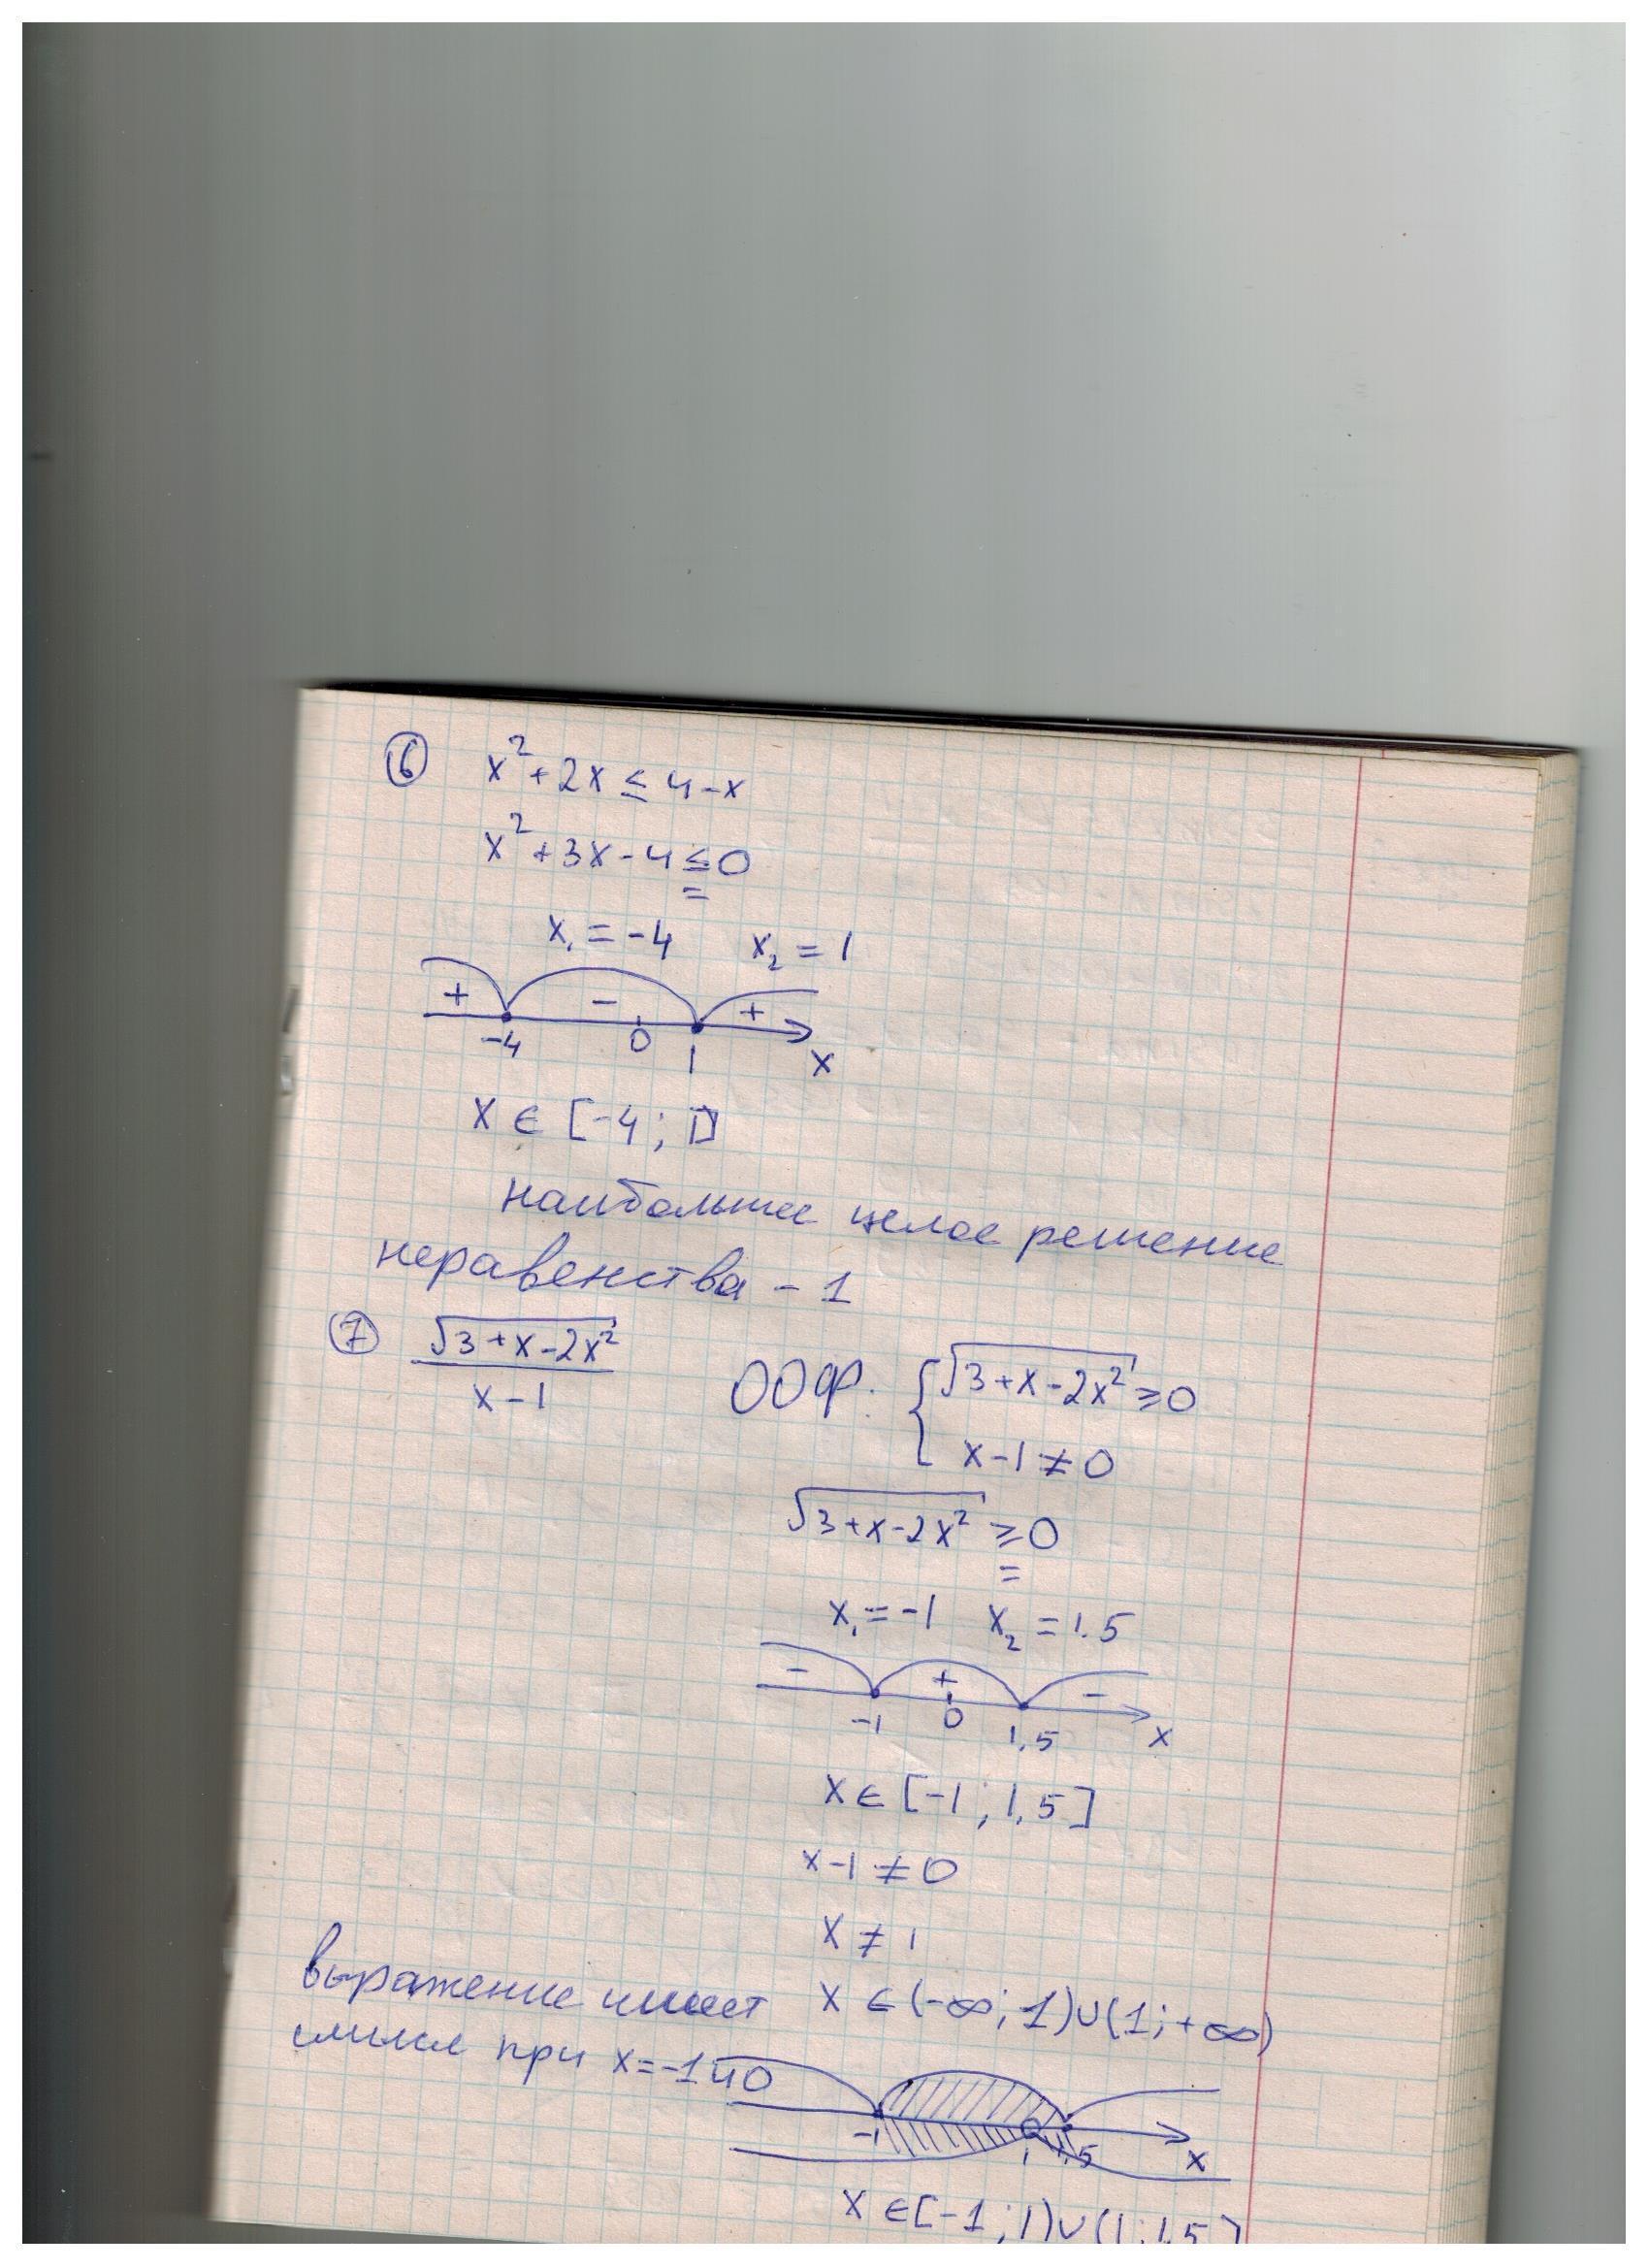 ⑥ x² + 2x ≤ 4 - x
x² + 3x - 4 ≤ 0
x₁ = -4 x₂ = 1
+ - +
-4 0 1 x
x ∈ [-4; 1]
наибольшее целое решение
неравенства - 1
⑦ √(3+x-2x²) / (x-1) ООФ. { √(3+x-2x²) ≥ 0
x - 1 ≠ 0
√(3+x-2x²) ≥ 0
x₁ = -1 x₂ = 1.5
- + -
-1 0 1,5 x
x ∈ [-1; 1,5]
x - 1 ≠ 0
x ≠ 1
выражение имеет x ∈ (-∞; 1)∪(1; +∞)
смысл при x = -1 и 0
-1 1 1,5 x
x ∈ [-1; 1)∪(1; 1,5]